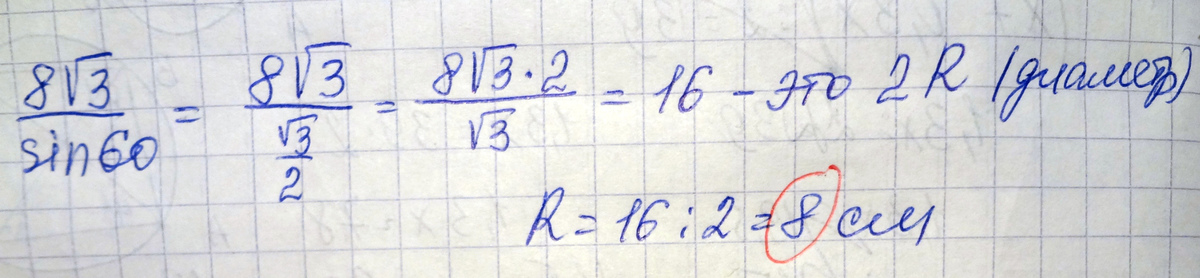 8√3/sin60 = 8√3/(√3/2) = 8√3·2/√3 = 16 - это 2R (диаметр)
R = 16 : 2 = 8 см